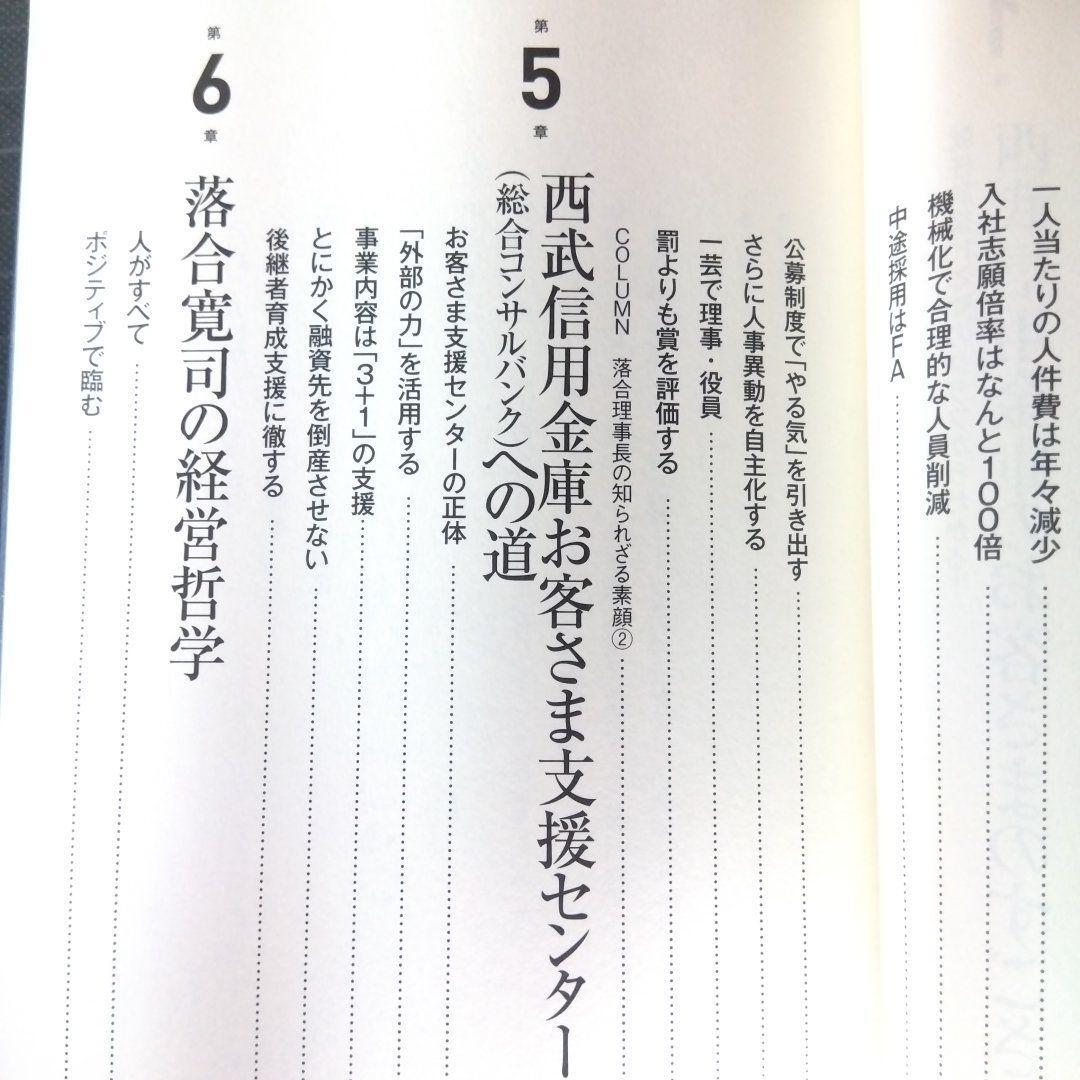 一人当たりの人件費は年々減少
入社志願倍率はなんと100倍
機械化で合理的な人員削減
中途採用はFA
公募制度で「やる気」を引き出す
さらに人事異動を自主化する
一芸で理事・役員
罰よりも賞を評価する
COLUMN 落合理事長の知られざる素顔②
第5章
西武信用金庫お客さま支援センター
(総合コンサルバンク)への道
お客さま支援センターの正体
「外部の力」を活用する
事業内容は「3+1」の支援
とにかく融資先を倒産させない
後継者育成支援に徹する
第6章
落合寛司の経営哲学
人がすべて
ポジティブで臨む